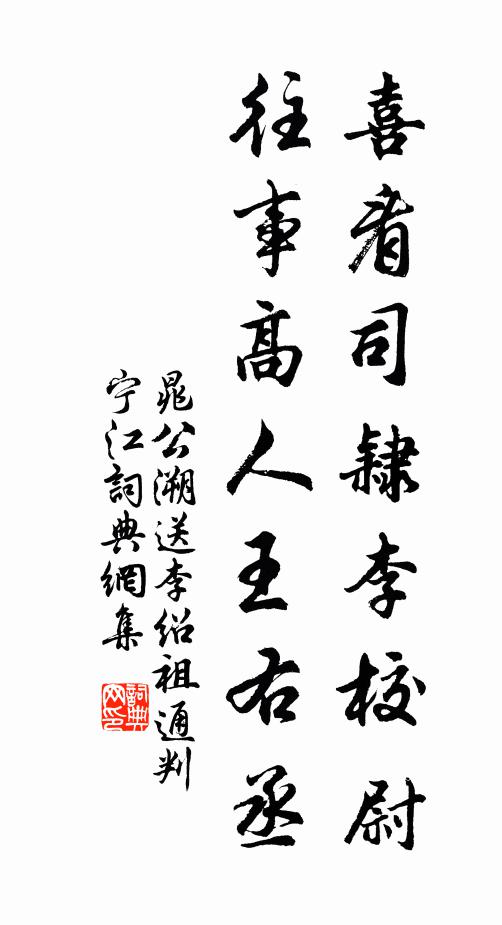 喜看司隸李校尉
往事高人王右丞
晁公溯送李紹祖通判
宁江詞典網集
詞典网印